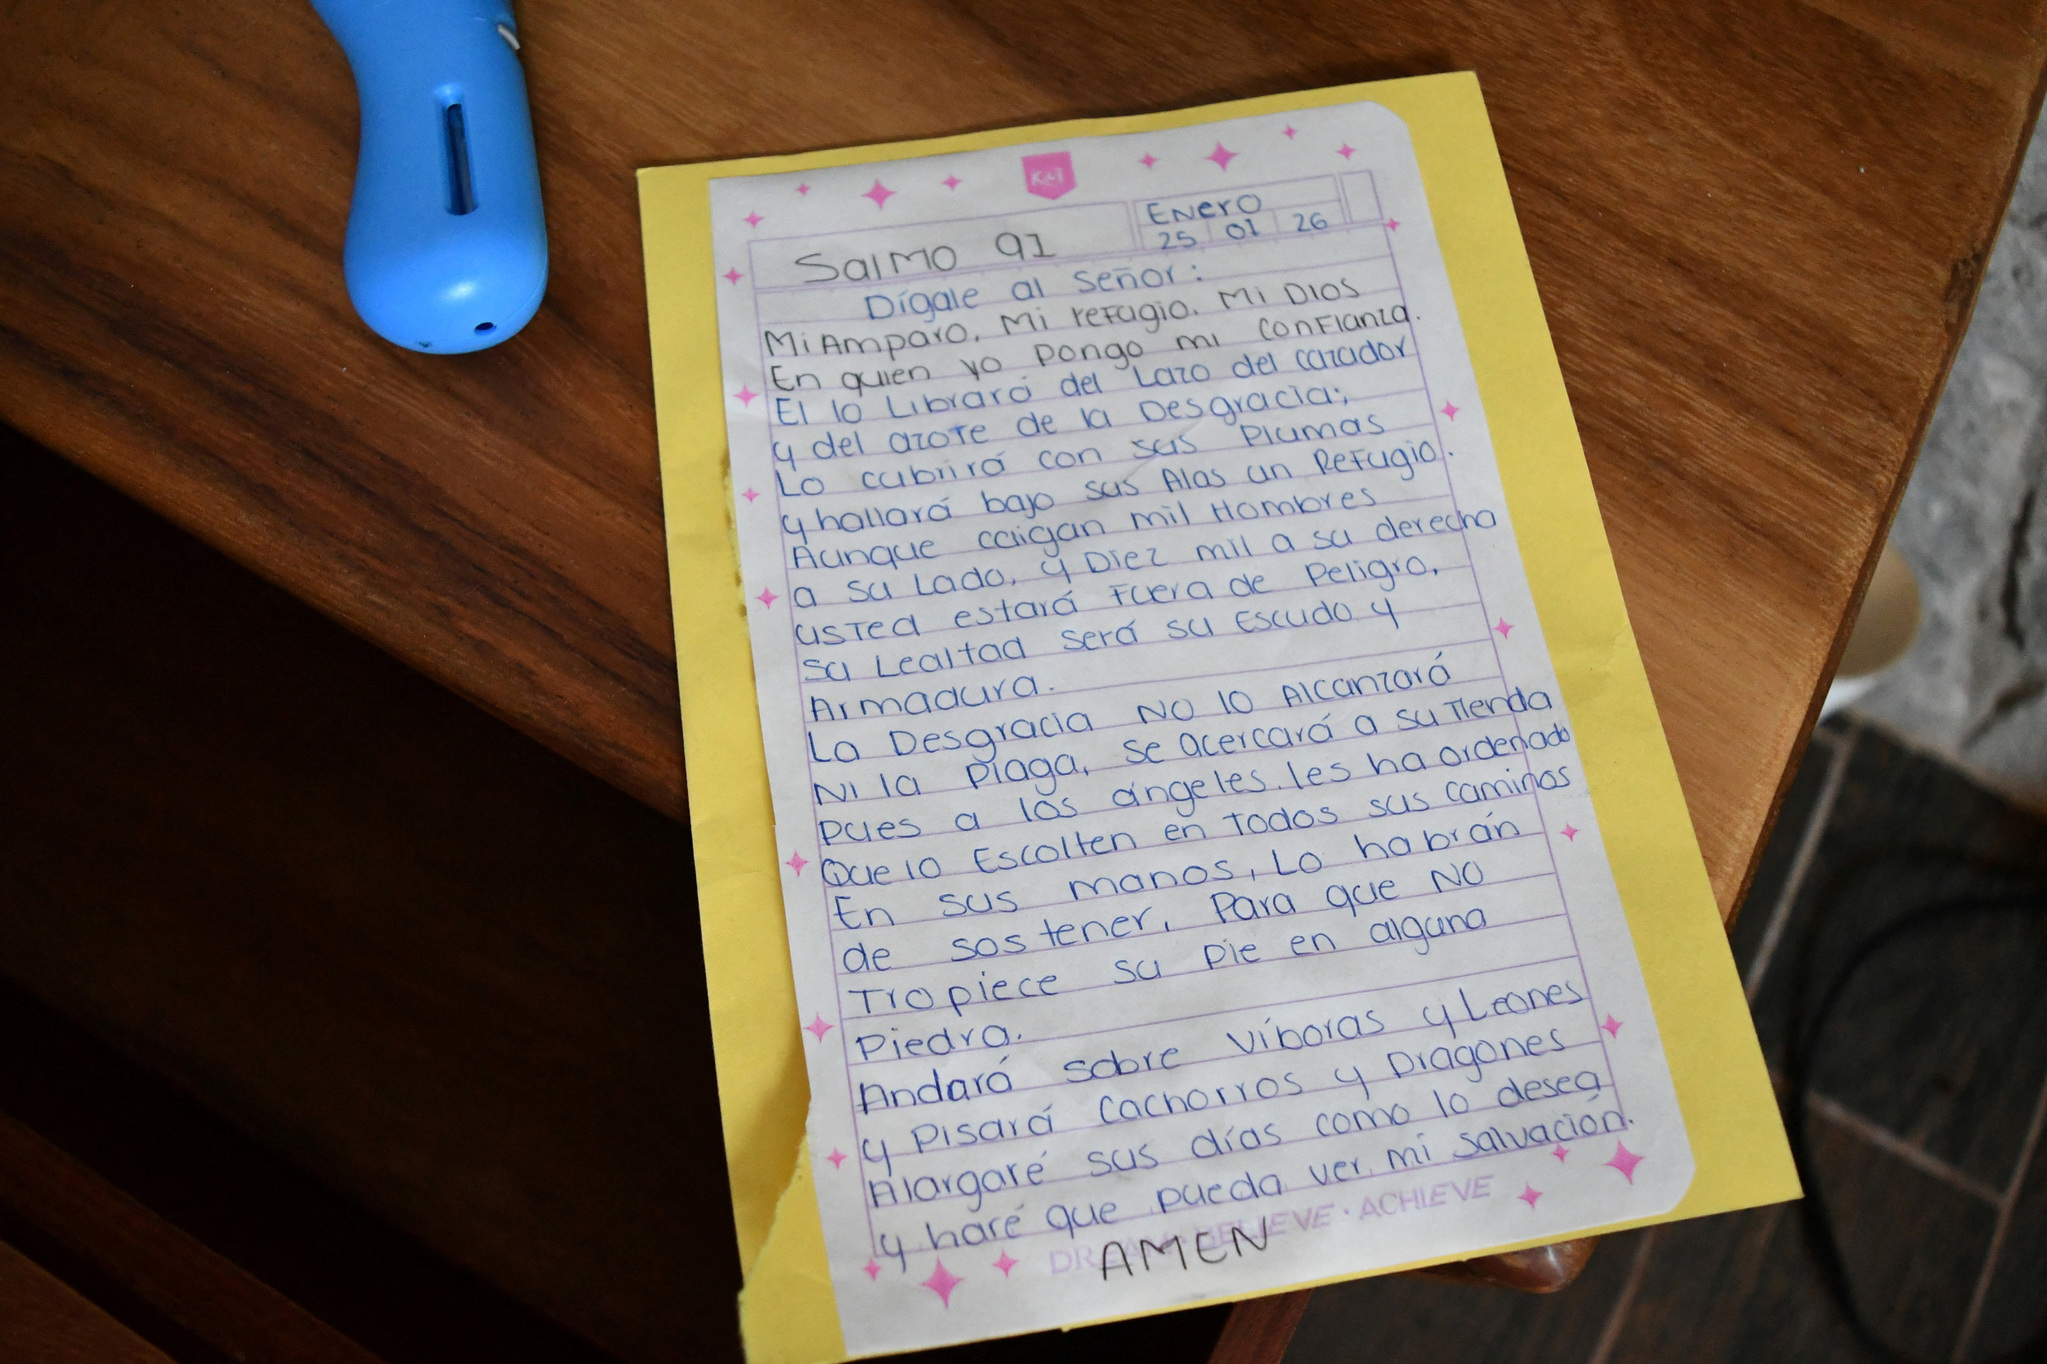 KMI
Enero
25 01 26
Salmo 91
Dígale al señor:
Mi Amparo, Mi refugio. Mi Dios
En quien yo pongo mi confianza.
El lo Librará del Lazo del cazador
y del azote de la Desgracia;
Lo cubrirá con sus Plumas
y hallará bajo sus Alas un Refugio.
Aunque caigan mil Hombres
a su Lado, y Diez mil a su derecha
usted estará Fuera de Peligro,
su Lealtad será su Escudo y
Armadura.
La Desgracia NO lo Alcanzará
Ni la plaga, se acercará a su Tienda
pues a los ángeles, les ha ordenado
Que lo Escolten en todos sus caminos
En sus manos, Lo habrán
de sostener, Para que NO
Tropiece su pie en alguna
Piedra.
Andará sobre víboras y Leones
y pisará Cachorros y Dragones
Alargaré sus días como lo desea
y haré que pueda ver mi salvación.
BELIEVE · ACHIEVE
AMEN